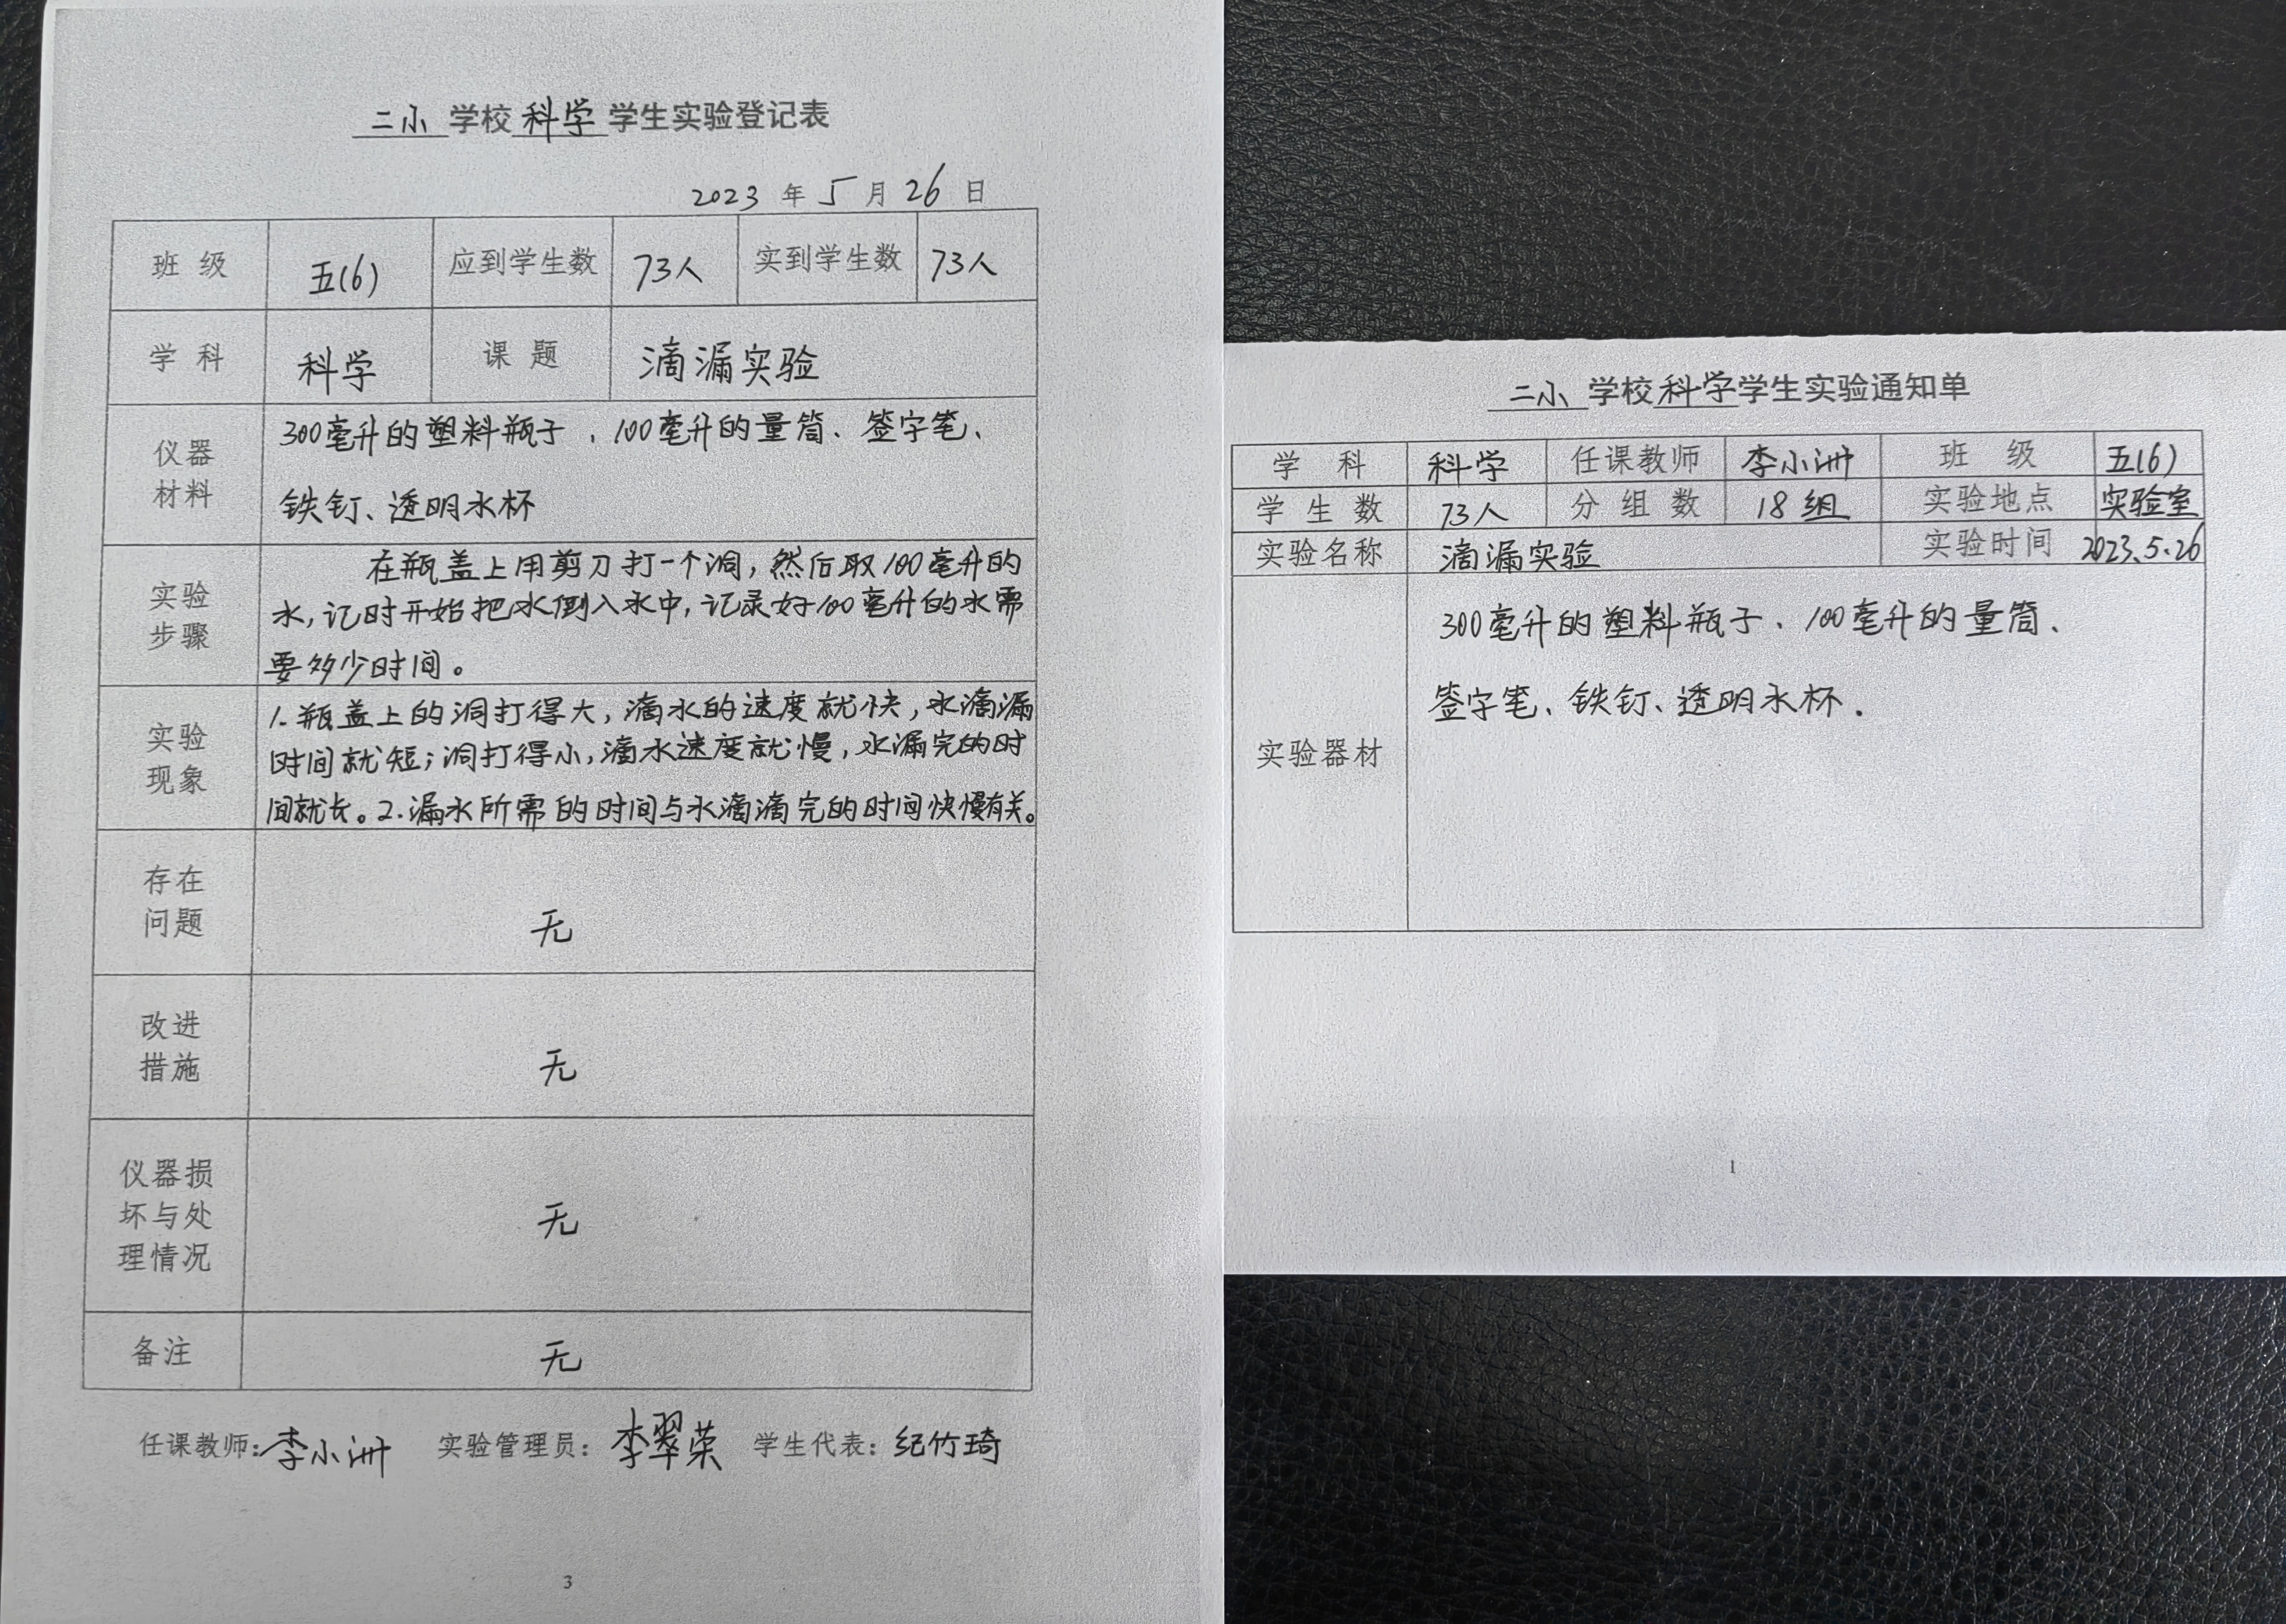 二小 学校 科学 学生实验登记表
2023 年 5 月 26 日
班 级 五(6) 应到学生数 73人 实到学生数 73人
学 科 科学 课 题 滴漏实验
仪器
材料
300毫升的塑料瓶子、100毫升的量筒、签字笔、
铁钉、透明水杯
实验
步骤
在瓶盖上用剪刀打一个洞,然后取100毫升的
水,记时开始把水倒入水中,记录好100毫升的水需
要多少时间。
实验
现象
1.瓶盖上的洞打得大,滴水的速度就快,水滴漏
时间就短;洞打得小,滴水速度就慢,水漏完的时
间就长。2.漏水所需的时间与水滴滴完的时间快慢有关。
存在
问题
无
改进
措施
无
仪器损
坏与处
理情况
无
备注 无
任课教师:李小洲 实验管理员:李翠荣 学生代表:纪竹琦
3
二小 学校 科学 学生实验通知单
学 科 科学 任课教师 李小洲 班 级 五(6)
学 生 数 73人 分 组 数 18组 实验地点 实验室
实验名称 滴漏实验 实验时间 2023.5.26
实验器材
300毫升的塑料瓶子、100毫升的量筒、
签字笔、铁钉、透明水杯.
1